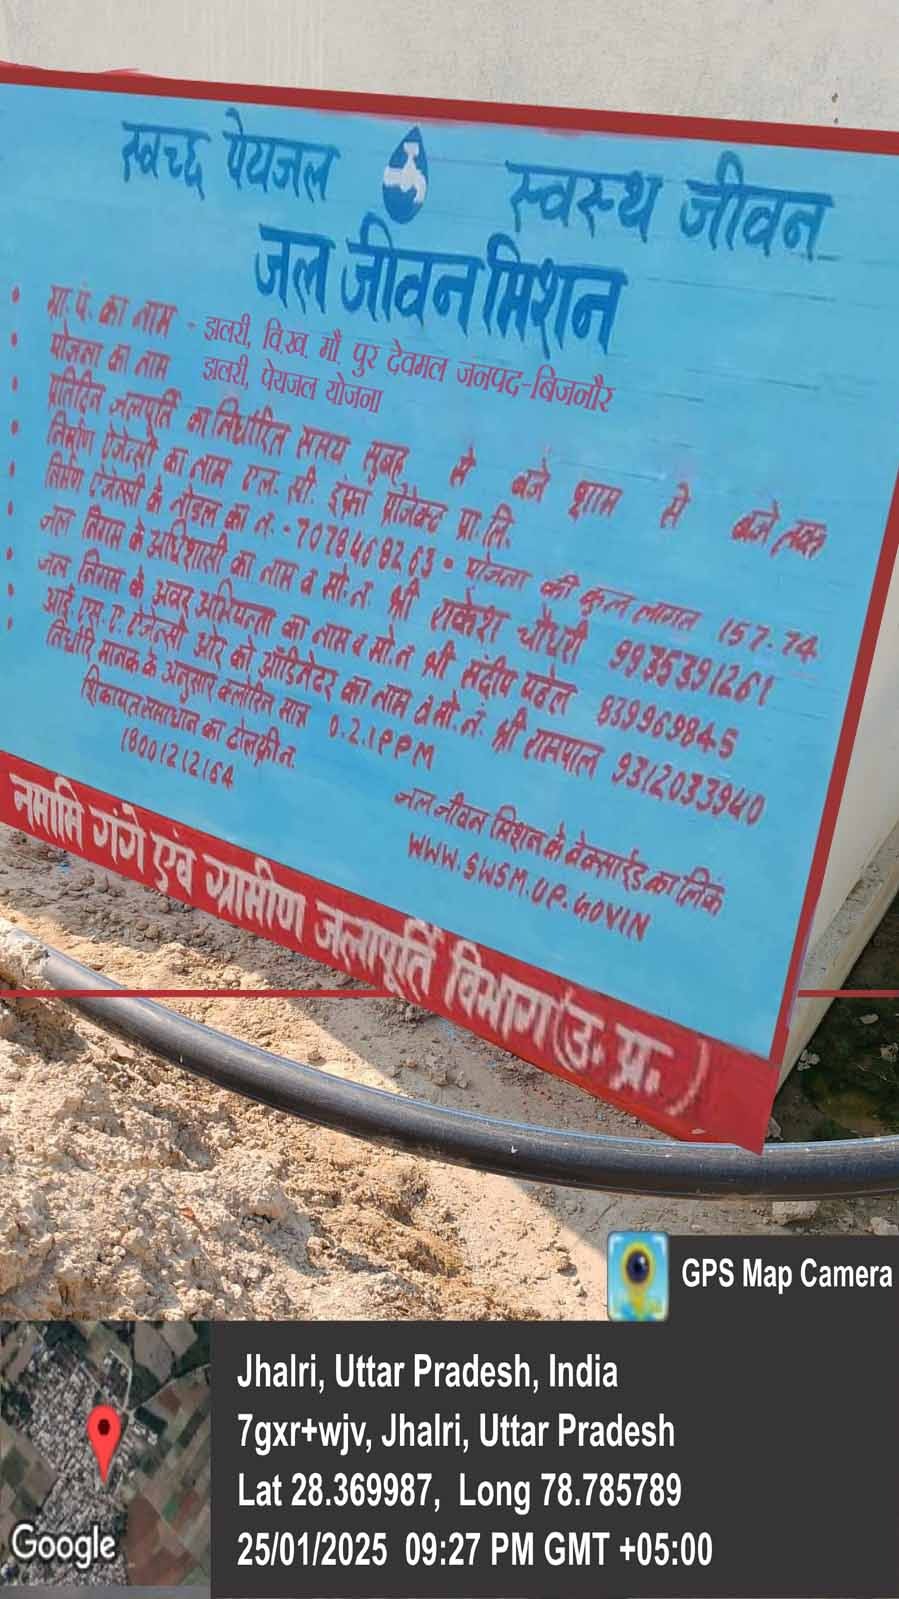 स्वच्छ पेयजल स्वस्थ जीवन
जल जीवन मिशन
ग्रा. पं. का नाम - झलरी, वि.ख. मौ. पुर देवमल जनपद-बिजनौर
योजना का नाम झलरी, पेयजल योजना
प्रतिदिन जलपूर्ति का निर्धारित समय सुबह से बजे शाम से बजे तक
निर्माण ऐजेन्सी का नाम एल. सी. इन्फ्रा प्रोजेक्ट प्रा. लि.
निर्माण ऐजेन्सी के नोडल का न. - 7078468263 • योजना की कुल लागत 157.74
जल निगम के अधिशासी का नाम व मो. न. श्री राकेश चौधरी 9935391261
जल निगम के अवर अभियन्ता का नाम व मो. न श्री संदीप पटेल 839969845
आई. एस. ए. ऐजेन्सी ओर को ऑडिनेटर का नाम व मो. नं. श्री रामपाल 9312033940
निर्धारि मानक के अनुसार क्लोरिन मात्रा 0.2.1PPM
शिकायत समाधान का टोल फ्री न.
18001212164
जल जीवन मिशन के वेबसाईड का लिंक
WWW.SWSM.UP.GOVIN
नमामि गंगे एंव ग्रामीण जलापूर्ति विभाग (उ. प्र.)
GPS Map Camera
Jhalri, Uttar Pradesh, India
7gxr+wjv, Jhalri, Uttar Pradesh
Lat 28.369987, Long 78.785789
25/01/2025 09:27 PM GMT +05:00
Google